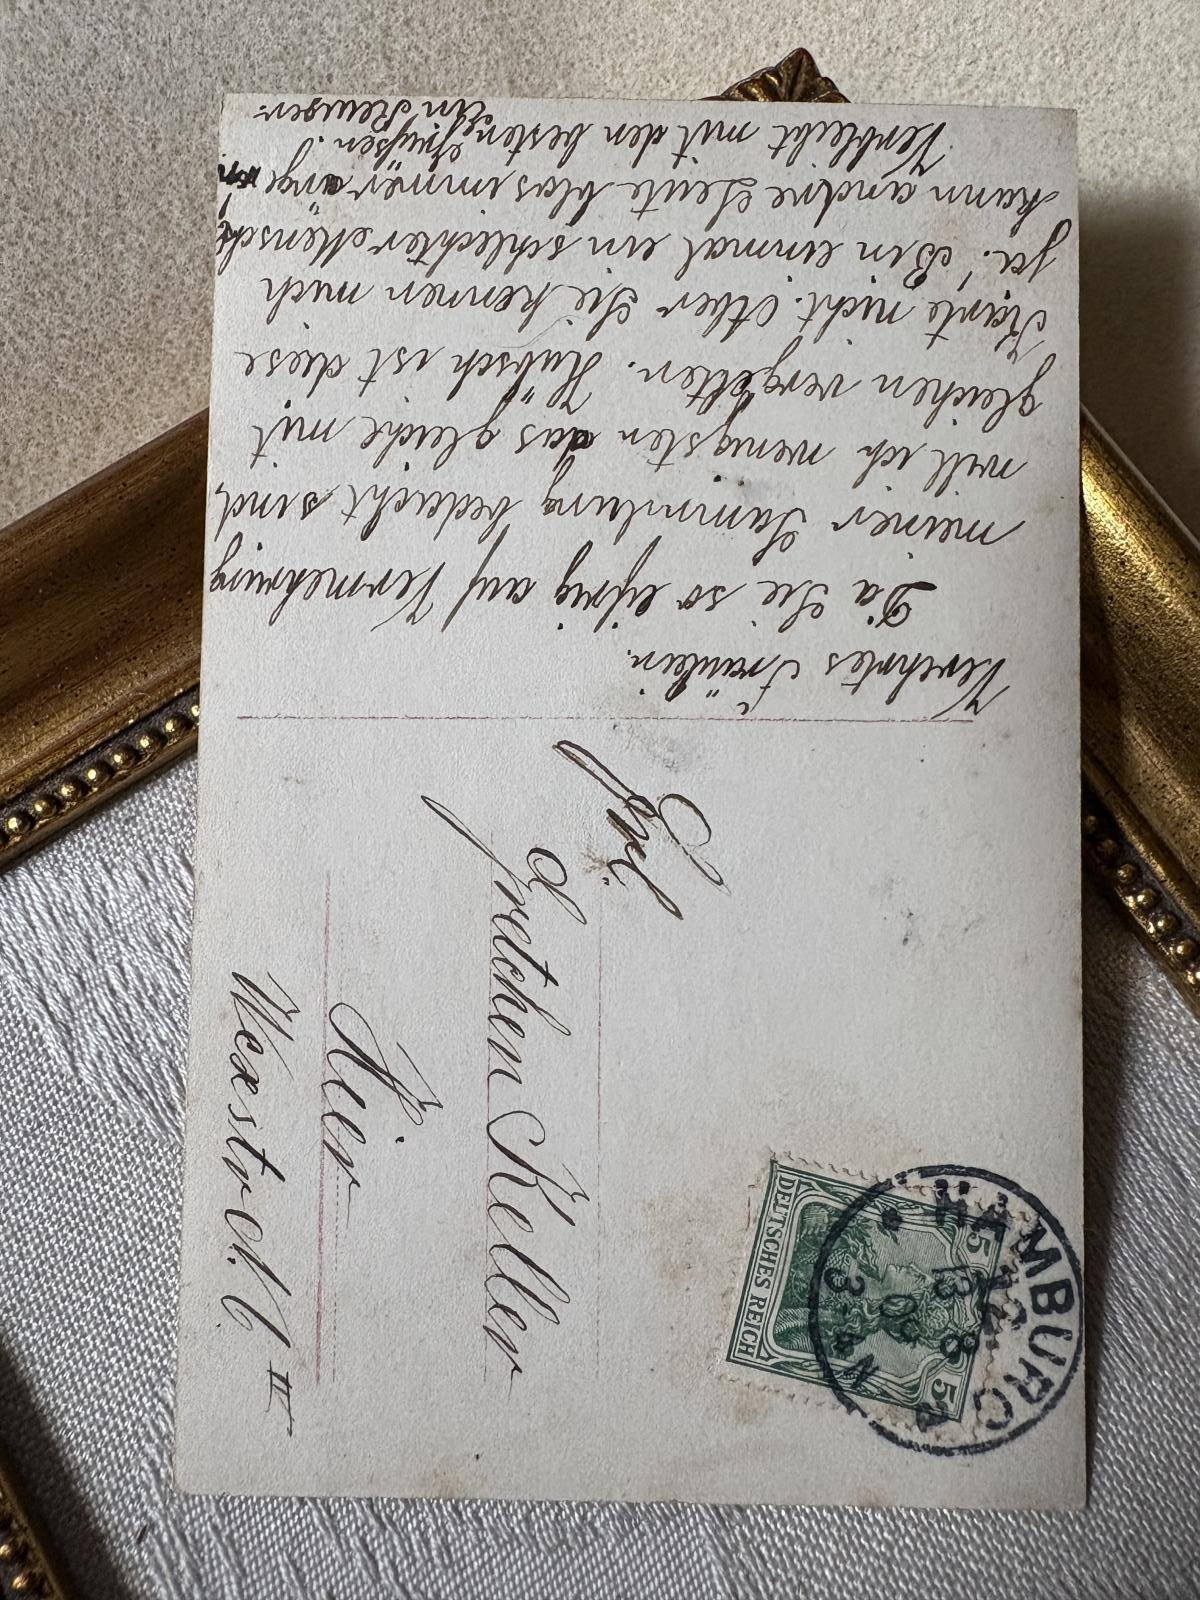 Verehrtes Fräulein.
Da Sie so eifrig auf Vermehrung
meiner Sammlung bedacht sind,
will ich wenigsten das gleiche mit
gleichen vergelten. Hübsch ist diese
Karte nicht. Aber Sie kennen mich
ja! Bin einmal ein schlechter Mensch
kann andre Leute blos immer ärgern
Verbleibt mit den besten
Grüssen.
Frl
Gretchen Keller
Hier
Wexstr
II
DEUTSCHES REICH
5 5
HAMBURG
13 8
3-4 N